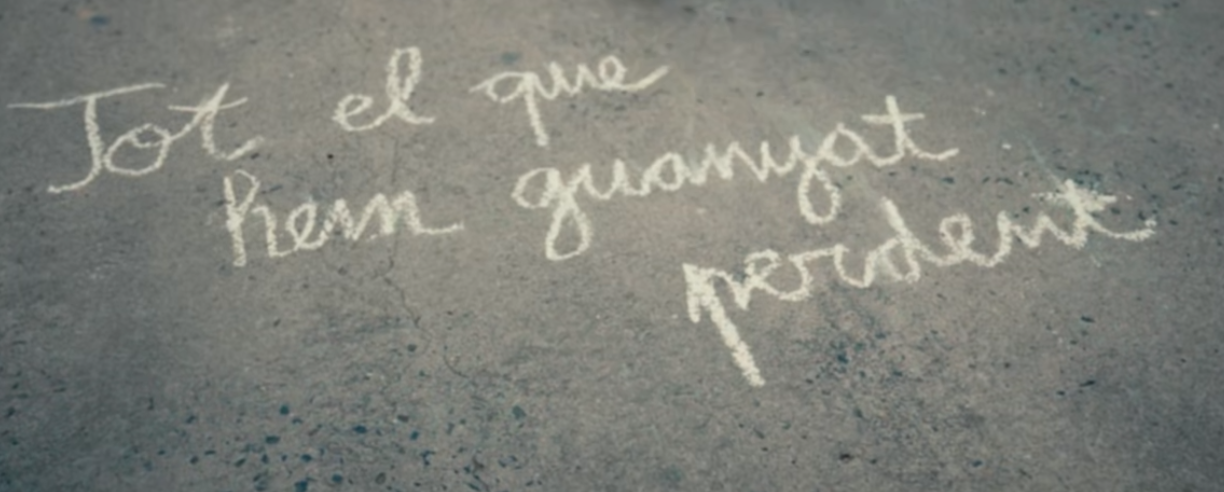 Tot el que
hem guanyat
perdent